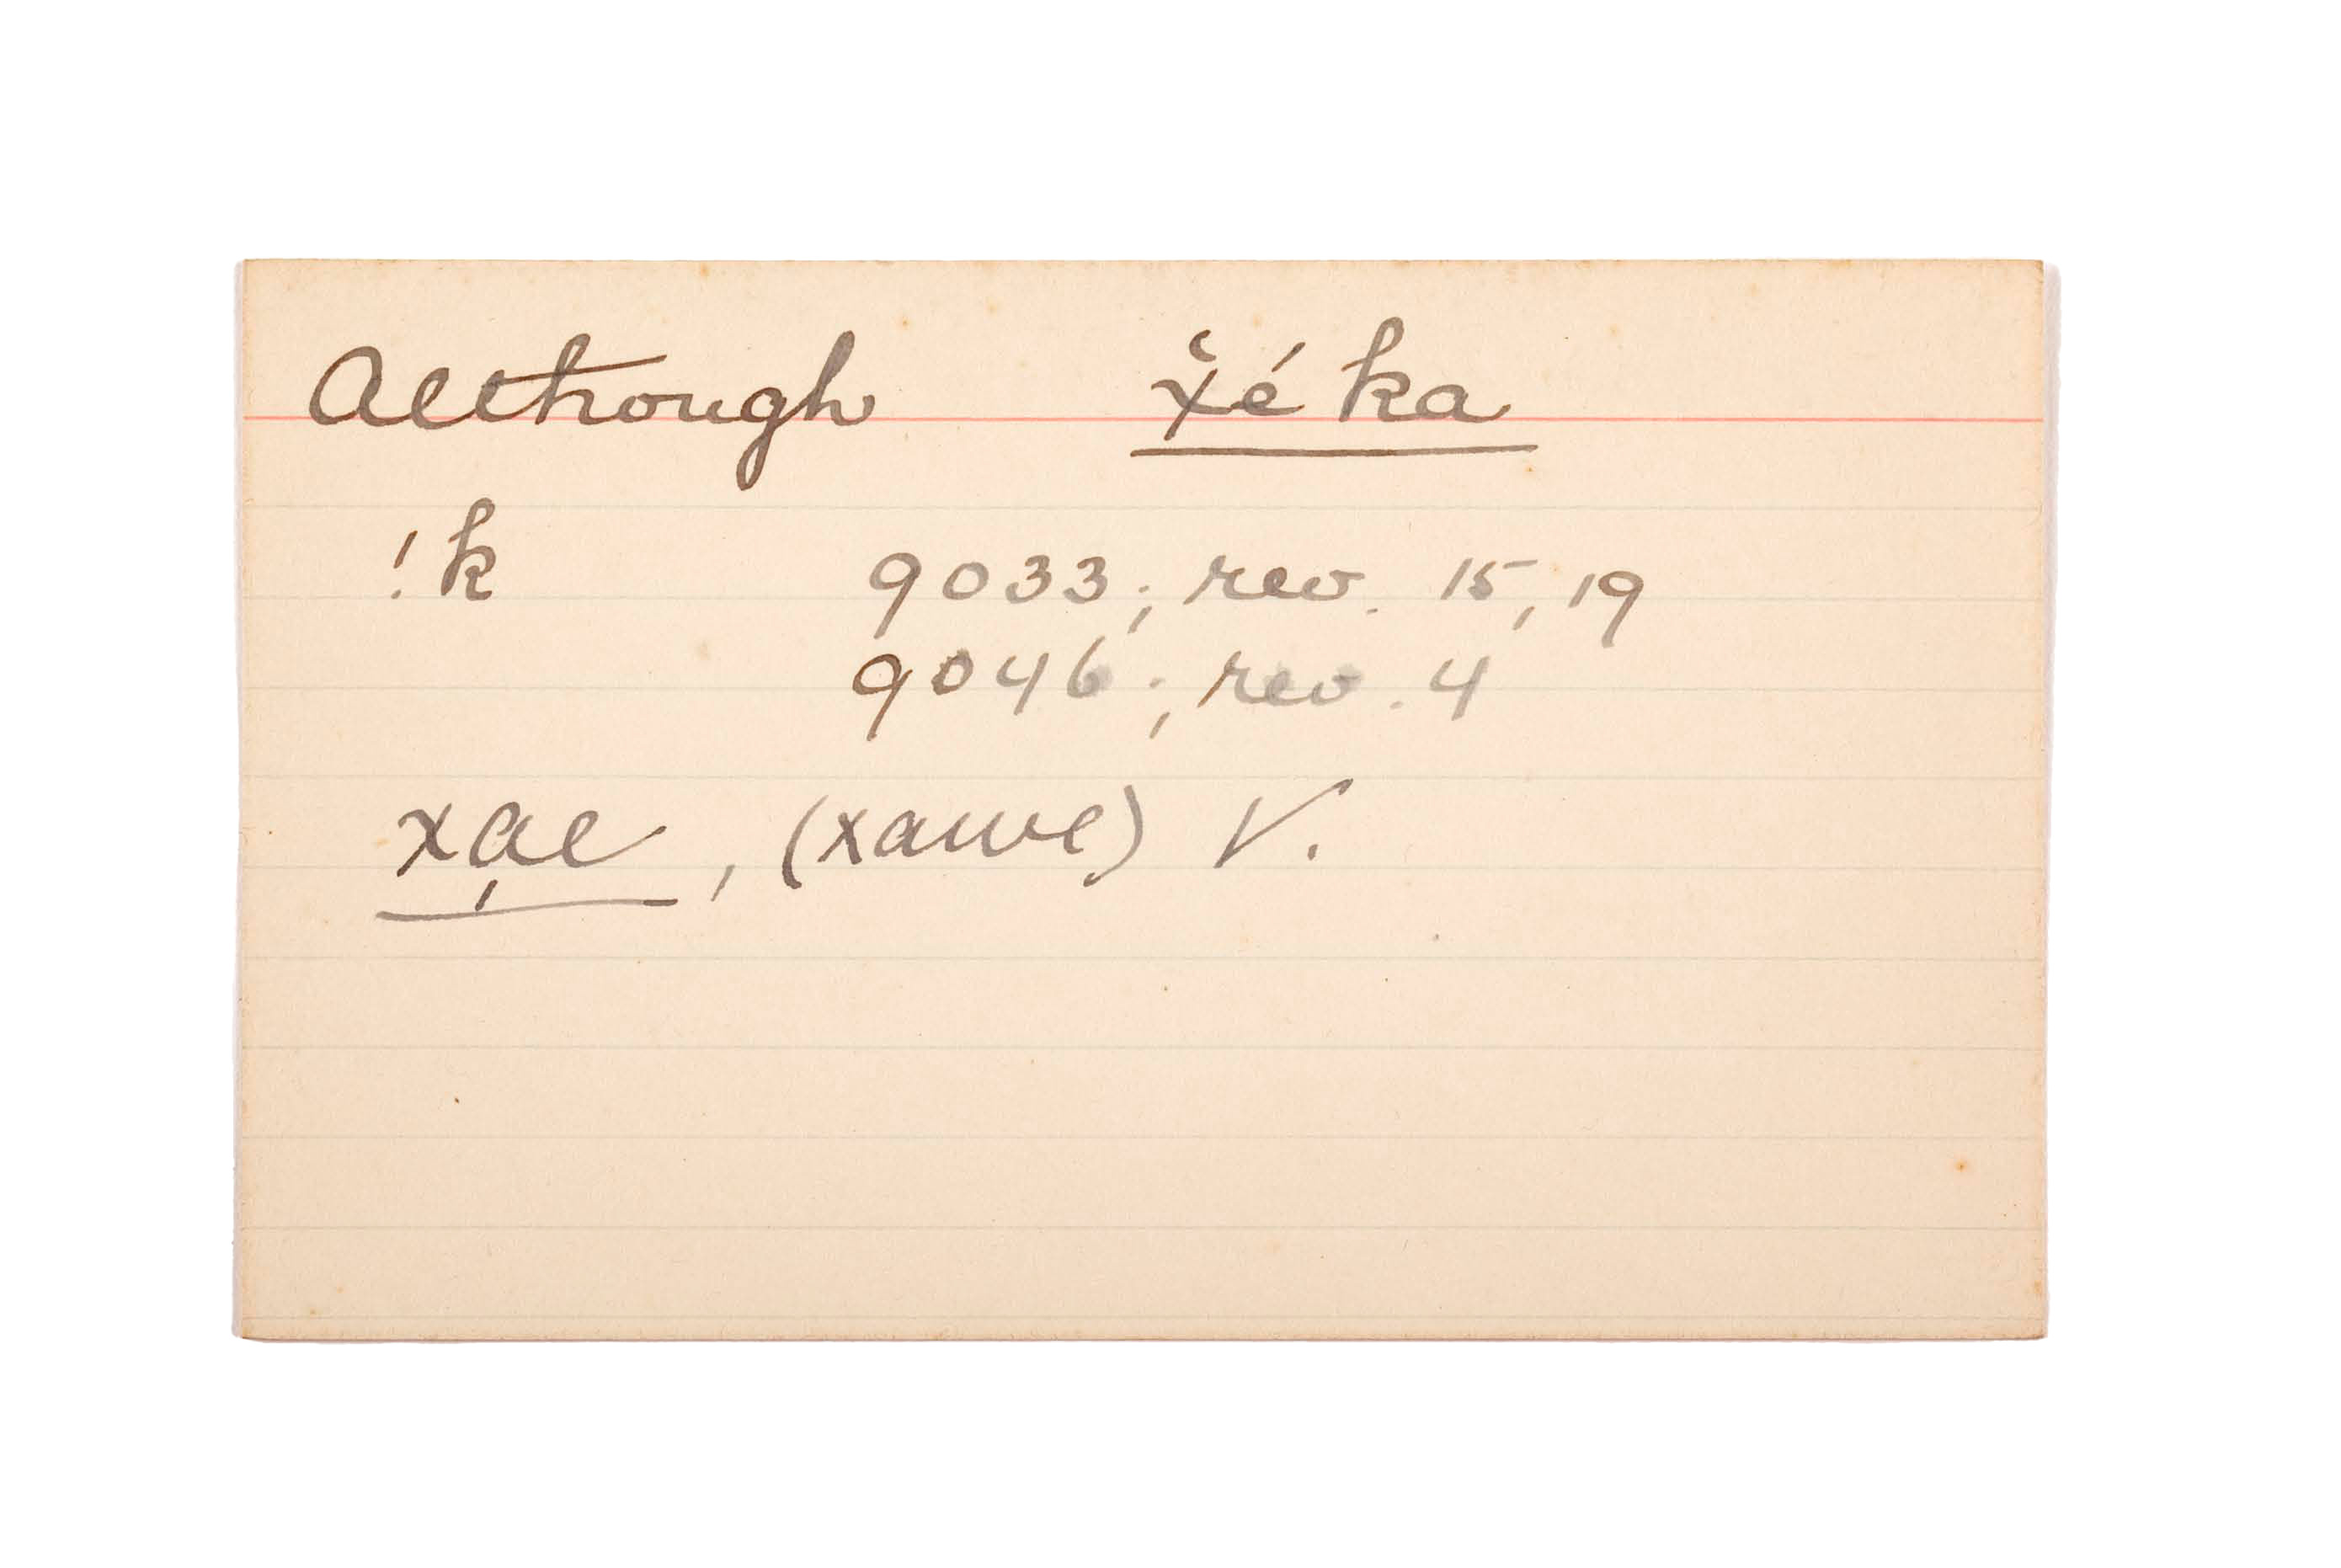 Although χ̆é ka
!k 9033; rev. 15, 19
9046; rev. 4
xa̗e, (xawe) V.